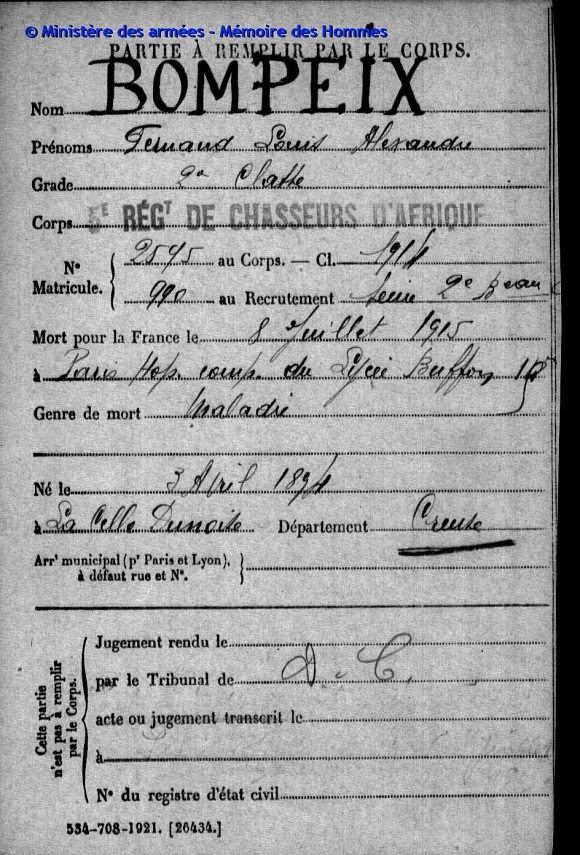 © Ministère des armées - Mémoire des Hommes
PARTIE À REMPLIR PAR LE CORPS.
Nom BOMPEIX
Prénoms Fernand Louis Alexandre
Grade 2e Classe
Corps 5E RÉGT DE CHASSEURS D'AFRIQUE
N° Matricule. { 2595 au Corps. — Cl. 1914
990 au Recrutement Seine 2e Bureau
Mort pour la France le 8 Juillet 1915
à Paris Hop. comp. du Lycée Buffon
Genre de mort Maladie
Né le 3 Avril 1894
à La Celle Dunoise Département Creuse
Arrt municipal (pr Paris et Lyon), }
à défaut rue et N°.
Cette partie n'est pas à remplir par le Corps. {
Jugement rendu le
par le Tribunal de D. C.
acte ou jugement transcrit le
à
N° du registre d'état civil
534-708-1921. [26434.]